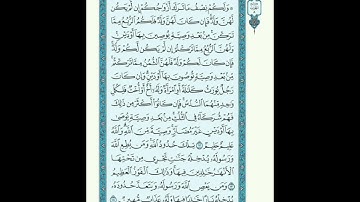 ۞ وَلَكُمْ نِصْفُ مَا تَرَكَ أَزْوَٰجُكُمْ إِن لَّمْ يَكُن
لَّهُنَّ وَلَدٌ فَإِن كَانَ لَهُنَّ وَلَدٌ فَلَكُمُ ٱلرُّبُعُ مِمَّا
تَرَكْنَ مِنۢ بَعْدِ وَصِيَّةٍ يُوصِينَ بِهَآ أَوْ دَيْنٍ
وَلَهُنَّ ٱلرُّبُعُ مِمَّا تَرَكْتُمْ إِن لَّمْ يَكُن لَّكُمْ وَلَدٌ
فَإِن كَانَ لَكُمْ وَلَدٌ فَلَهُنَّ ٱلثُّمُنُ مِمَّا تَرَكْتُم
مِّنۢ بَعْدِ وَصِيَّةٍ تُوصُونَ بِهَآ أَوْ دَيْنٍ وَإِن كَانَ
رَجُلٌ يُورَثُ كَلَٰلَةً أَوِ ٱمْرَأَةٌ وَلَهُۥٓ أَخٌ أَوْ أُخْتٌ فَلِكُلِّ
وَٰحِدٍ مِّنْهُمَا ٱلسُّدُسُ فَإِن كَانُوٓا۟ أَكْثَرَ مِن ذَٰلِكَ
فَهُمْ شُرَكَآءُ فِى ٱلثُّلُثِ مِنۢ بَعْدِ وَصِيَّةٍ يُوصَىٰ
بِهَآ أَوْ دَيْنٍ غَيْرَ مُضَآرٍّ وَصِيَّةً مِّنَ ٱللَّهِ وَٱللَّهُ
عَلِيمٌ حَلِيمٌ ۝١٢ تِلْكَ حُدُودُ ٱللَّهِ وَمَن يُطِعِ ٱللَّهَ
وَرَسُولَهُۥ يُدْخِلْهُ جَنَّٰتٍ تَجْرِى مِن تَحْتِهَا
ٱلْأَنْهَٰرُ خَٰلِدِينَ فِيهَا وَذَٰلِكَ ٱلْفَوْزُ ٱلْعَظِيمُ
۝١٣ وَمَن يَعْصِ ٱللَّهَ وَرَسُولَهُۥ وَيَتَعَدَّ حُدُودَهُۥ
يُدْخِلْهُ نَارًا خَٰلِدًا فِيهَا وَلَهُۥ عَذَابٌ مُّهِينٌ ۝١٤